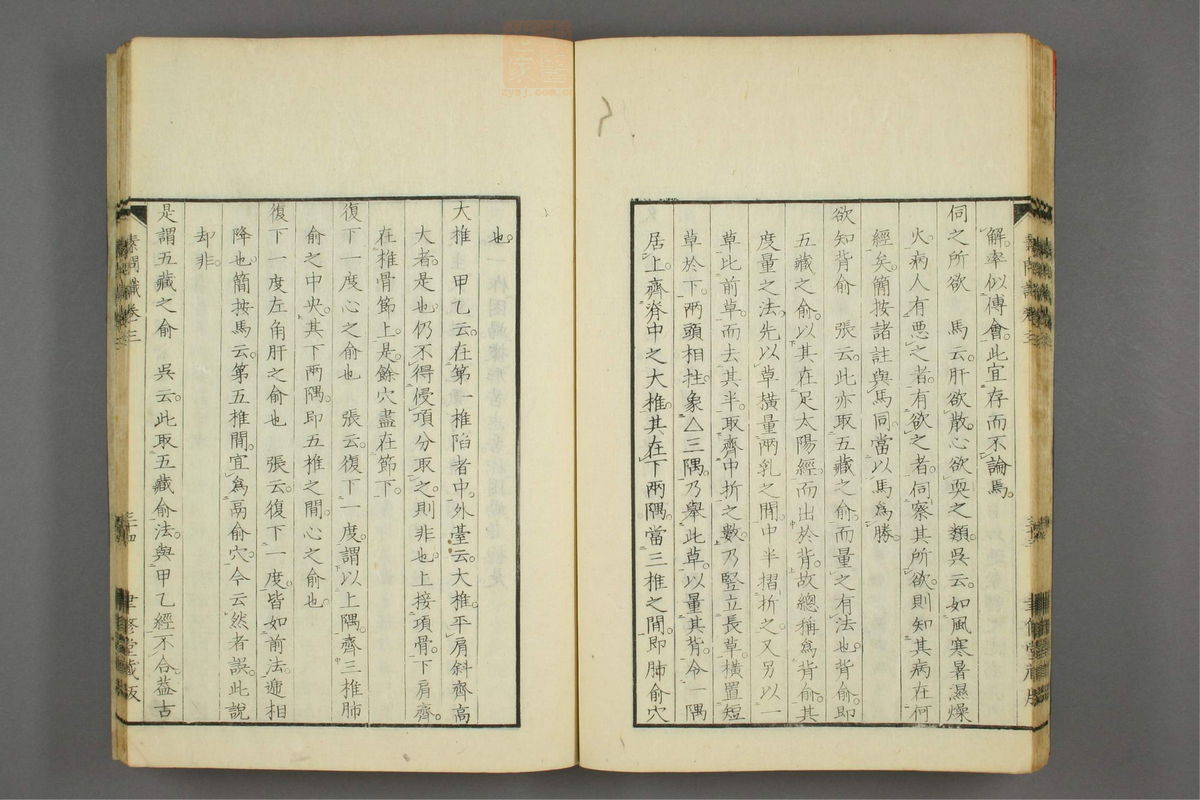 解。率似傅會。此宜存而不論焉。
伺之所欲　馬云。肝欲散。心欲耎之類。吳云。如風寒暑濕燥
火。病人有悪之者。有欲之者。伺察其所欲。則知其病在何
經矣。簡按諸註與馬同。當以馬爲勝。
欲知背俞　張云。此亦取五藏之俞。而量之有法也。背俞。即
五藏之俞。以其在足太陽經。而出於背。故總稱爲背俞。其
度量之法。先以草横量兩乳之間。中半摺折之。又另以一
草比前草。而去其半。取齊中折之數。乃竪立長草。横置短
草於下。兩頭相拄。象△三隅。乃舉此草。以量其背。令一隅
居上。齊脊中之大椎。其在下兩隅。當三椎之間。即肺俞穴
也。
大椎　甲乙云。在第一椎陷者中。外臺云。大椎。平肩斜齊高
大者。是也。仍不得侵項分取之。則非也。上接項骨。下肩齊。
在椎骨節上。是。餘穴盡在節下。
復下一度心之俞也　張云。復下一度。謂以上隅。齊三椎肺
俞之中央。其下兩隅。即五椎之間。心之俞也。
復下一度左角肝之俞也　張云。復下一度。皆如前法。遞相
降也。簡按馬云。第五椎間。宜爲鬲俞穴。今云然者誤。此說
却非。
是謂五藏之俞　吳云。此取五藏俞法。與甲乙經不合。蓋古
素問識卷三
三十四
聿修堂藏版